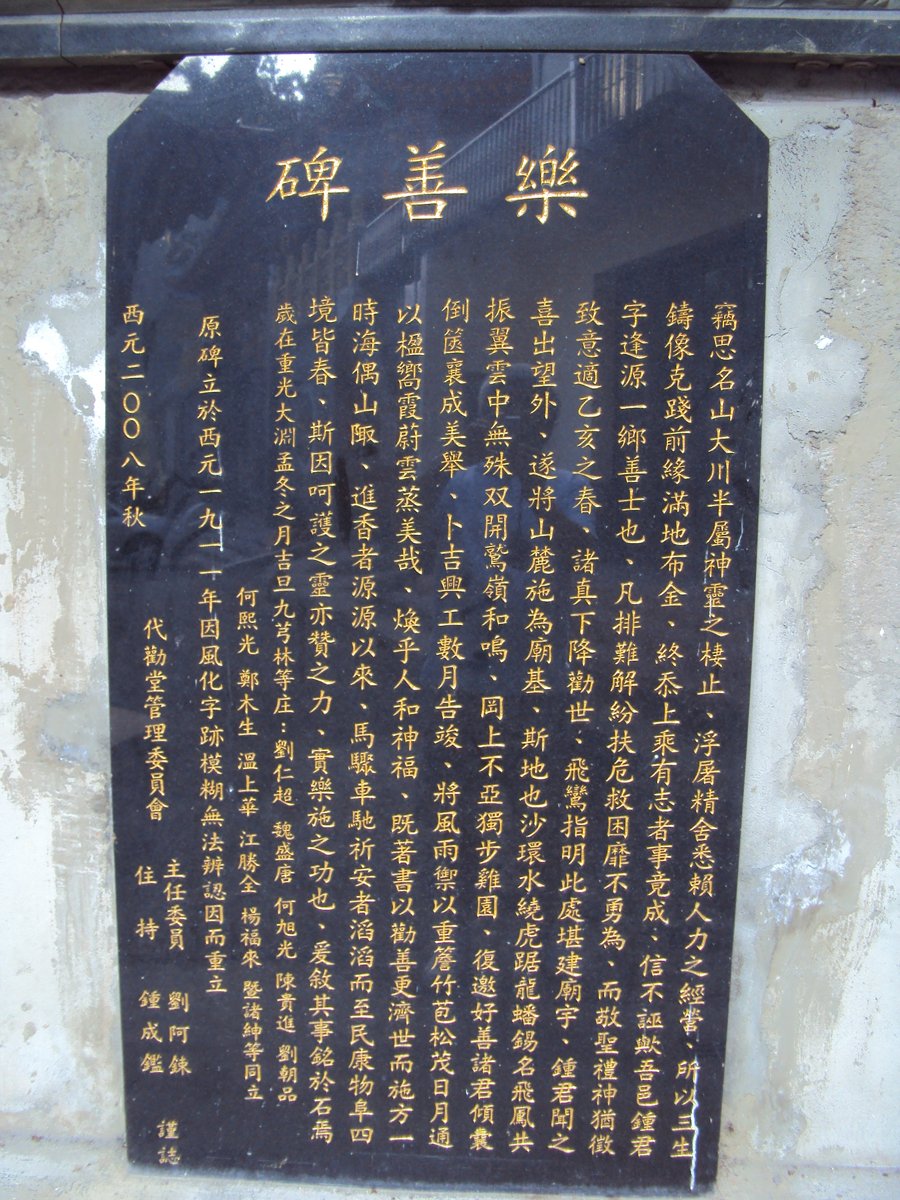 樂善碑
竊思名山大川半屬神靈之棲止、浮屠精舍悉賴人力之經營、所以三生
鑄像克踐前緣滿地布金、終忝上乘有志者事竟成、信不誣歟吾邑鍾君
字逢源一鄉善士也、凡排難解紛扶危救困靡不勇為、而敬聖禮神猶徵
致意適乙亥之春、諸真下降勸世、飛鸞指明此處堪建廟宇、鍾君聞之
喜出望外、遂將山麓施為廟基、斯地也沙環水繞虎踞龍蟠錫名飛鳳共
振翼雲中無殊双開鷲嶺和鳴、岡上不亞獨步雞園、復邀好善諸君傾囊
倒篋襄成美舉、卜吉興工數月告竣、將風雨禦以重簷竹苞松茂日月通
以楹嚮霞蔚雲蒸美哉、煥乎人和神福、既著書以勸善更濟世而施方一
時海偶山陬、進香者源源以來、馬驟車馳祈安者滔滔而至民康物阜四
境皆春、斯因呵護之靈亦贊之力、實樂施之功也、爰敘其事銘於石焉
歲在重光大淵孟冬之月吉旦九芎林等庄：劉仁超 魏盛唐 何旭光 陳貴進 劉朝品
何熙光 鄭木生 溫上華 江勝全 楊福來 暨諸紳等同立
原碑立於西元一九一一年因風化字跡模糊無法辨認因而重立
西元二〇〇八年秋
代勸堂管理委員會
主任委員 劉阿錸
住持 鍾成鑑
謹誌